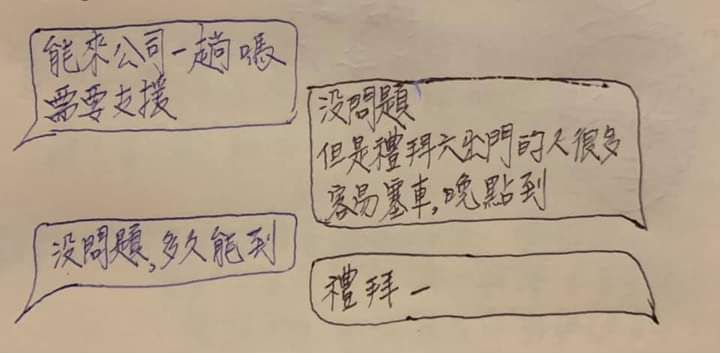 能來公司一趟嗎
需要支援
沒問題
但是禮拜六出門的人很多
容易塞車,晚點到
沒問題,多久能到
禮拜一